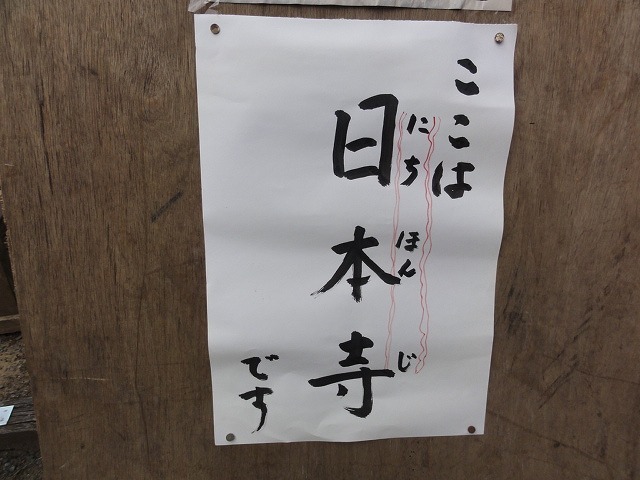 ここは
にちほんじ
日本寺
です